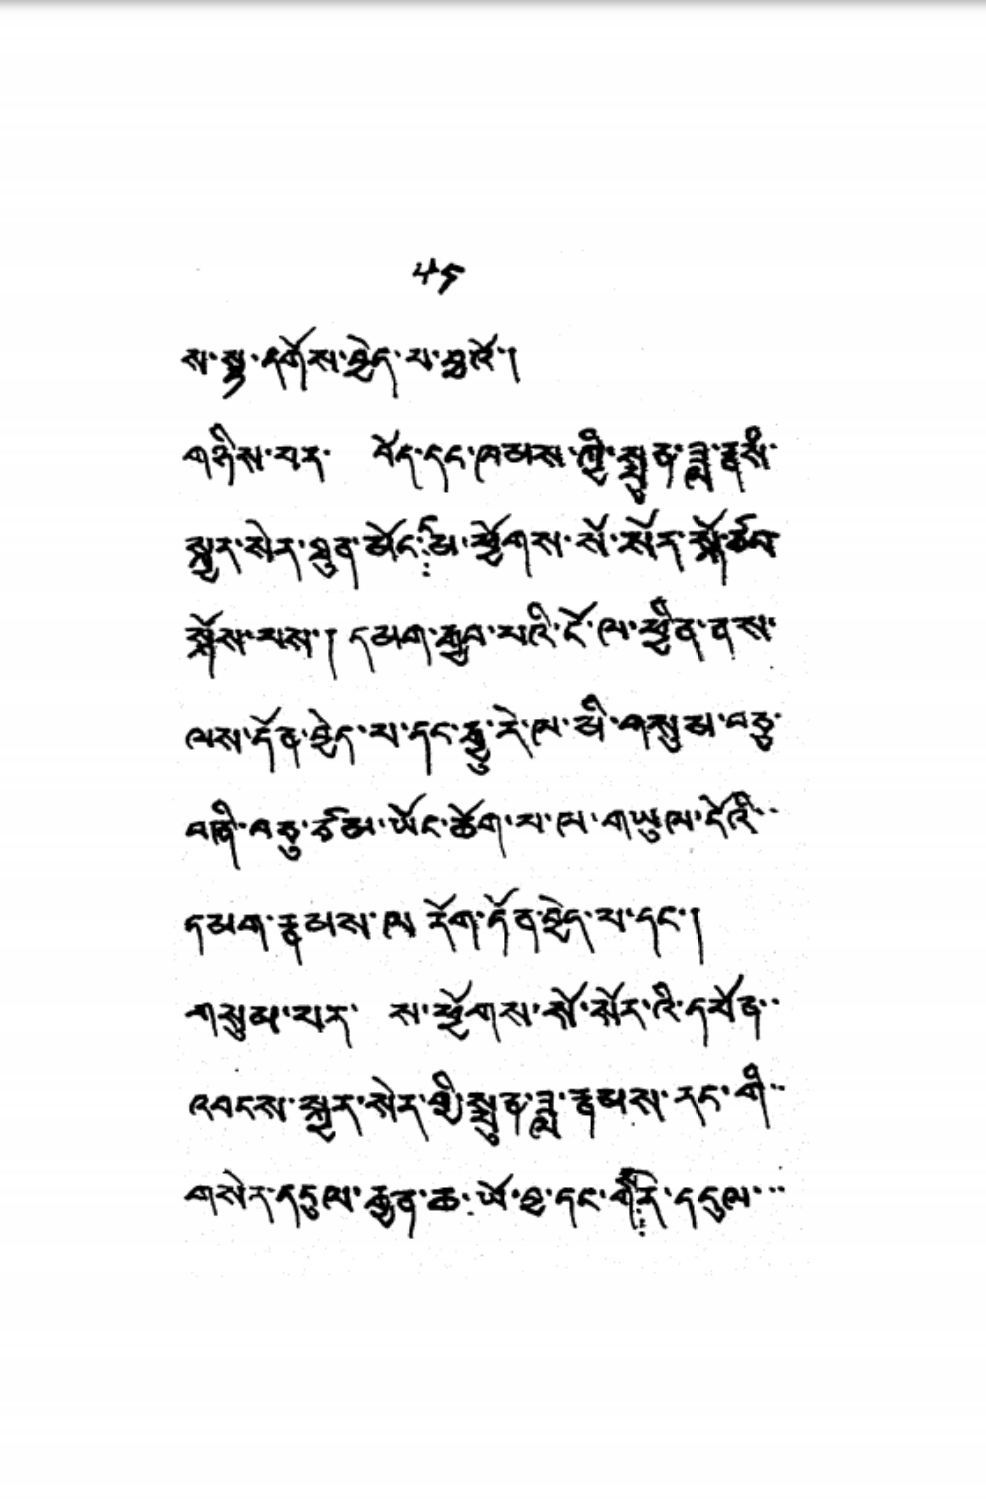 ༤༥
ས་སྟ་དགོས་བྱེད་པ་བྱའོ།
གཉིས་པར་ བོད་དང་ཁམས་ཀྱི་སྤུན་ཟླ་རྣམས་
སྐྱར་སེར་ཐུན་མོང་མི་ཕྱོགས་སོ་སོར་སྐོ་ཙམ་
སྐོས་པས། དམག་རྒྱབ་པའི་ངོ་ལ་ཕྱིན་ནས་
ལས་དོན་བྱེད་པ་དང་རྒྱུ་རེ་ལ་མི་གསུམ་བཅུ་
བཞི་བཅུ་ཙམ་ཡོང་ཆོག་པ་ལ་གཡུལ་ངོའི་
དམག་རྣམས་ལ་རོག་དོན་བྱེད་པ་དང་།
གསུམ་པར་ ས་ཕྱོགས་སོ་སོར་འི་དཔོན་
འབངས་སྐྱར་སེར་གྱི་སྤུན་ཟླ་རྣམས་རང་གི་
གསེར་དངུལ་རྒྱན་ཆ་ཡོ་བྱ་དང་གོར་དངུལ་